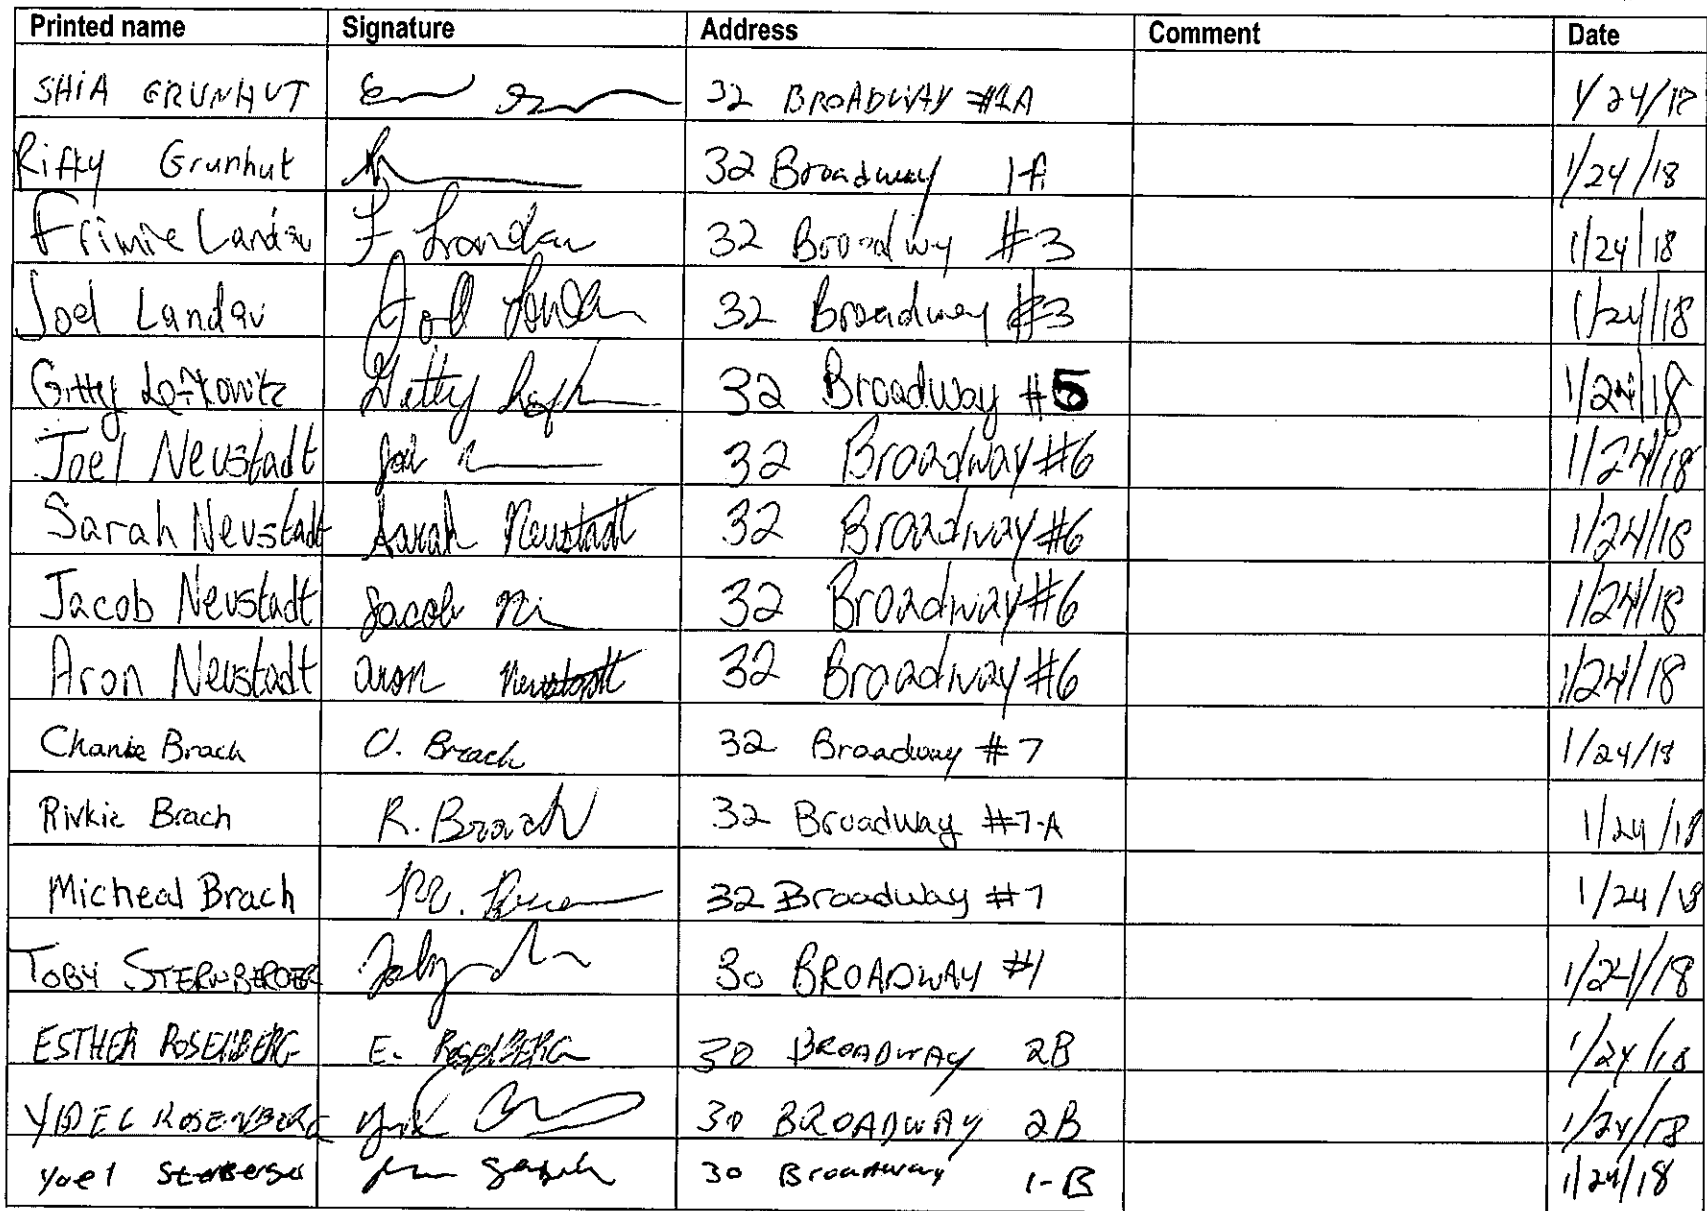 Printed name Signature Address Comment Date
SHIA GRUNHUT 32 BROADWAY #1A 1/24/18
Rifky Grunhut 32 Broadway 1-A 1/24/18
Frimie Landau F Landau 32 Broadway #3 1/24/18
Joel Landau Joel Landau 32 Broadway #3 1/24/18
Gitty Lefkowitz Gitty 32 Broadway #5 1/24/18
Joel Neustadt Joel 32 Broadway #6 1/24/18
Sarah Neustadt Sarah Neustadt 32 Broadway #6 1/24/18
Jacob Neustadt Jacob 32 Broadway #6 1/24/18
Aron Neustadt aron Neustadt 32 Broadway #6 1/24/18
Chanie Brach C. Brach 32 Broadway #7 1/24/18
Rivkie Brach R. Brach 32 Broadway #7-A 1/24/18
Micheal Brach M. 32 Broadway #7 1/24/18
TOBY STERNBERGER Toby 30 BROADWAY #1 1/24/18
ESTHER ROSENBERG E. ROSENBERG 30 BROADWAY 2B 1/24/18
YIDEL ROSENBERG 30 BROADWAY 2B 1/24/18
Yoel 30 Broadway 1-B 1/24/18